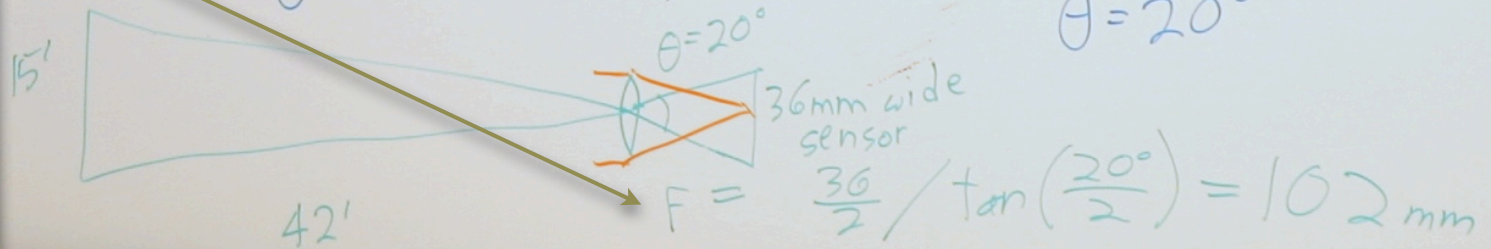 15'
42'
θ=20°
θ=20°
36mm wide
sensor
F = 36/2 / tan(20°/2) = 102 mm